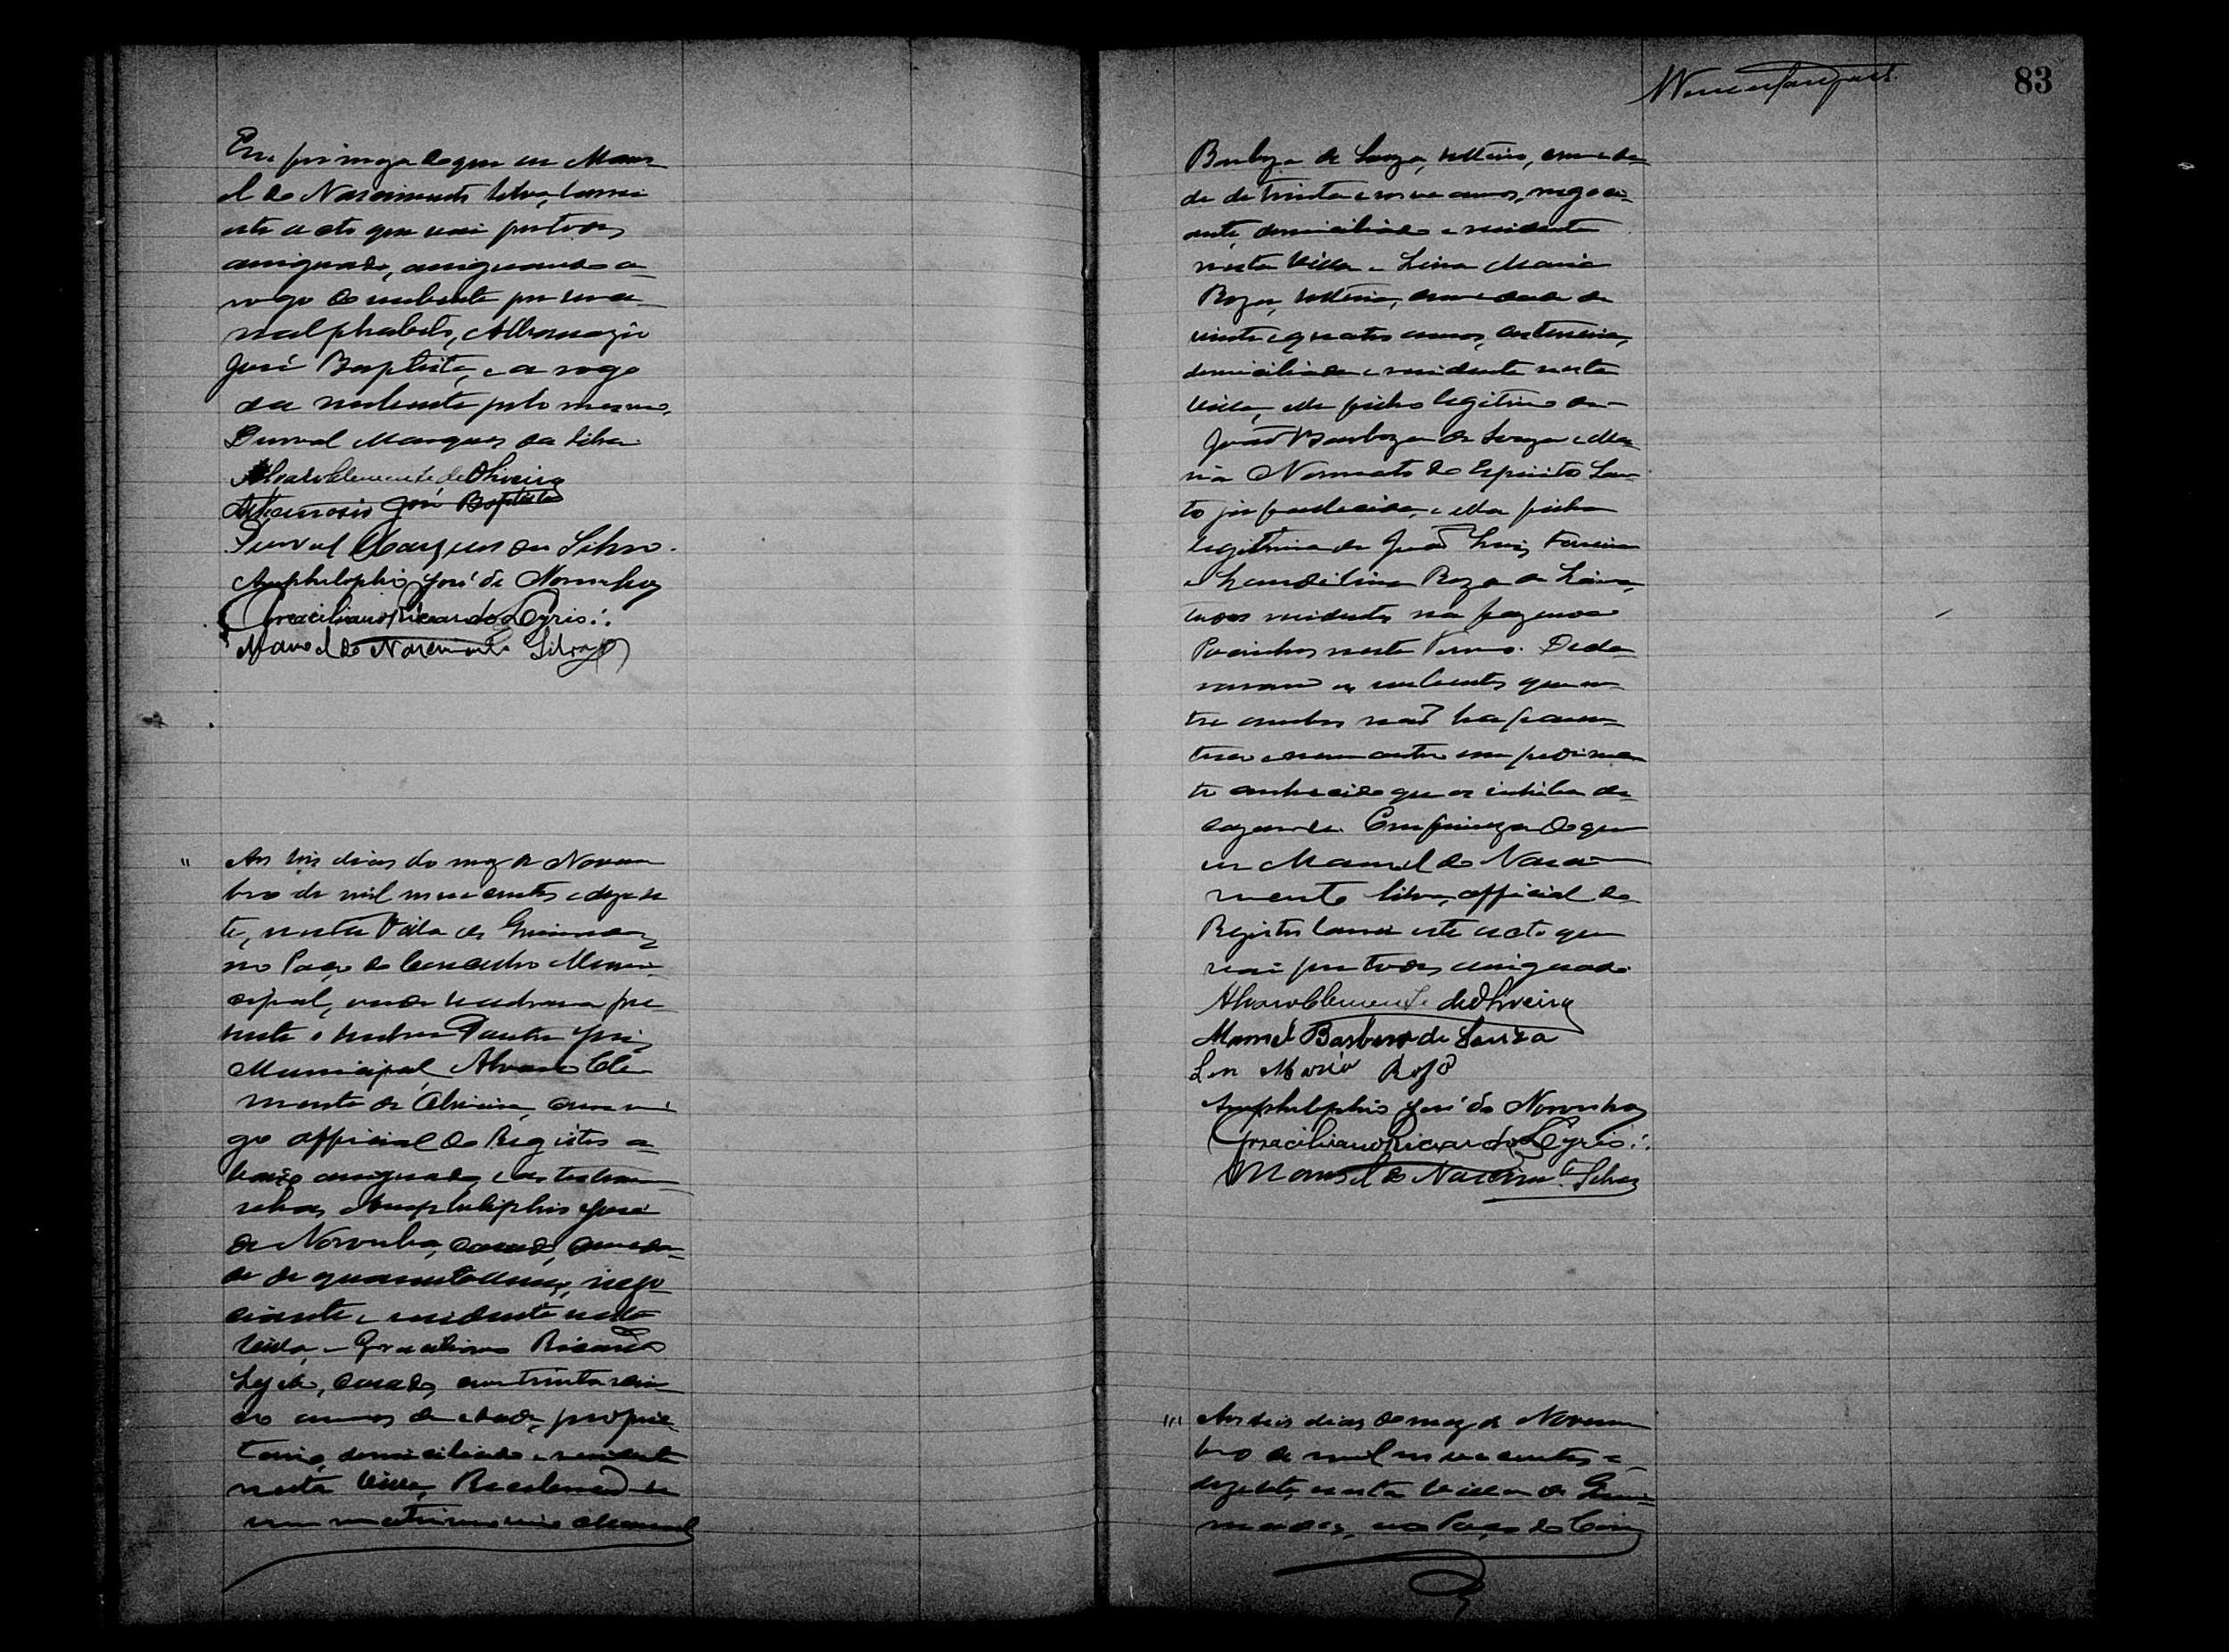 Em firmeza do que eu Mano
el do Nascimento Silva, lavrei
este acto que vai por todos
assignado, assignando a
rogo do nubente por ser a
nalphabeto, Athanazio
José Baptista, e a rogo
da nubente pelo mesmo,
Durval Marques da Silva.
Alvaro Clemente de Oliveira
Athanasio José Baptista
Durval Marques da Silva.
Amphilophio José de Noronha
Graciliano Ricardo Lyrio
Manoel do Nascimento Silva
" Aos seis dias do mez de Novem
bro de mil novecentos e dezese
te, nesta Villa de
no Paço do Conselho Muni
cipal, onde se achava pre
sente o senhor Doutor Juiz
Municipal, Alvaro Cle
mente de Oliveira, com mi
go official do Registro a
baixo assignado e as testemu
nhas Amphilophio José
de Noronha, casado, com eda
de de quarenta annos, nego
ciante, residente nesta
Villa, e Graciliano Ricardo
Lyrio, casado, com trinta e cin
co annos de edade, proprie
tario, domiciliado e residente
nesta Villa, Receberam-se
em matrimonio Manoel
83
Barboza de Souza, solteiro, com eda
de de trinta e nove annos, negoci
ante, domiciliado e residente
nesta Villa e Lina Maria
Roza, solteira, com edade de
vinte e quatro annos, costureira,
domiciliada e residente nesta
Villa, elle filho legitimo de
João Barboza de Souza e Ma
ria do Espirito San
to já fallecida, e ella filha
legitima de João Luiz Ferreira
e Roza de
residentes na fazenda
Pocinhos neste Termo. Decla
raram os nubentes que en
tre ambos não ha paren
tesco e nem outro impedimen
to conhecido que os inhiba de
cazarem-se. Em firmeza do que
eu Manoel do Nasci
mento Silva, official do
Registro lavrei este acto que
vai por todos assignado.
Alvaro Clemente de Oliveira
Manoel Barboza de Souza
Lina Maria Roza
Amphilophio José de Noronha
Graciliano Ricardo Lyrio
Manoel do Nascimto. Silva
''' Aos seis dias do mez de Novem
bro de mil novecentos e
dezesete, nesta Villa de
no Paço do Con